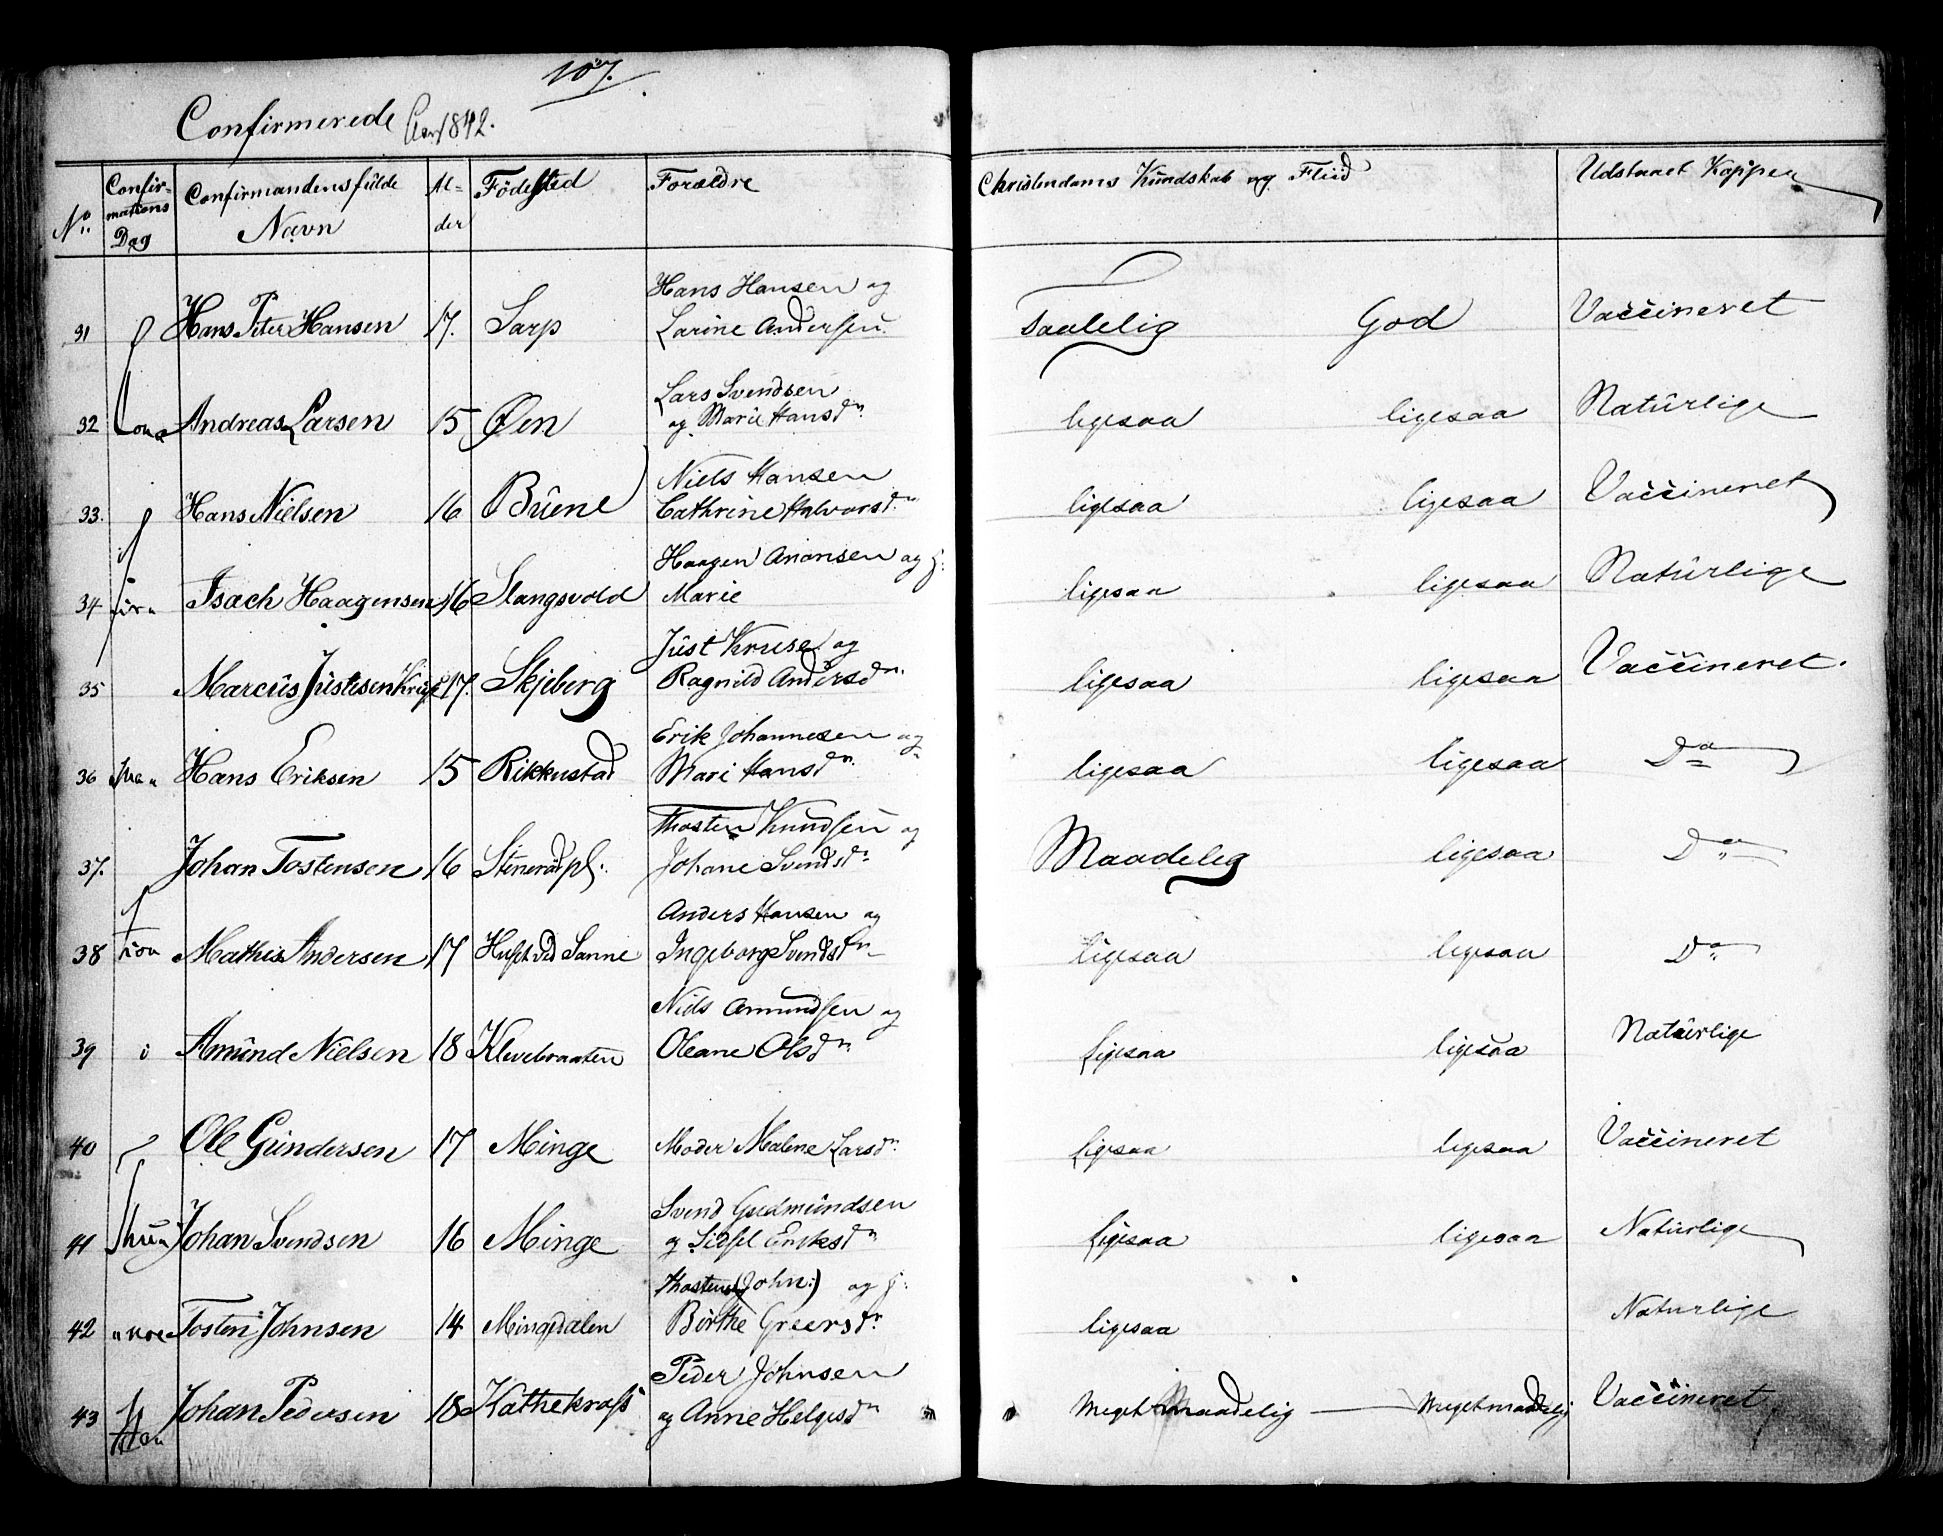 107.
Confirmerede Aar 1842.
No Confirmations Dag Confirmandens fulde Navn Alder Födested Forældre Christendoms Kundskab og Fliid Udstaaet Kopper
Hans Hansen og
31 Hans Peter Hansen 17. Sarp Larine Andersen Taalelig God Vaccineret
Lars Svendsen
32 Andreas Larsen 15 Øen og Marie Hansdn ligesaa ligesaa Natürlige
Niels Hansen
33. Hans Nielsen 16 Buene Cathrine Halvorsdn ligesaa ligesaa Vaccineret
Haagen Anansen og g:
34 Isach Haagensen 16 Slangsvold Marie ligesaa ligesaa Natürlige
Just Kruse og
35 Marcus Justesen Kruse 17. Skjeberg Ragnild Andersdn ligesaa ligesaa Vaccineret.
Erik Johannesen og
36 Hans Eriksen 15 Rikkustad Mari Hansdn ligesaa ligesaa Do
Thosten Knudsen og
37. Johan Tostensen 16 Stenerödpl. Johane Svendsdn Maadelig ligesaa Do
Anders Hansen og
38 Mathis Andersen 17 Huset ved Sanne Ingeborg Svendsdn ligesaa ligesaa Do
Niels Amundsen og
39 i Amünd Nielsen 18 Klevebraaten Oleane Olsdn Ligesaa ligesaa Natürlige
40 Ole Gündersen 17 Minge Moder Malene Larsdn Ligesaa ligesaa Vaccineret
Svend Gudmündsen
41 Johan Svendsen 16 Minge og Sidsel Eriksdn Ligesaa ligesaa Naturlige
Thosten (John:) og g:
42 Tosten Johnsen 14 Mingedalen Birthe Greersdn ligesaa Naturlige
Peder Johnsen
43 Johan Pedersen 18 Kathekrafs og Anne Helgesdn Meget Maadelig — Megetmaadelig Vaccineret